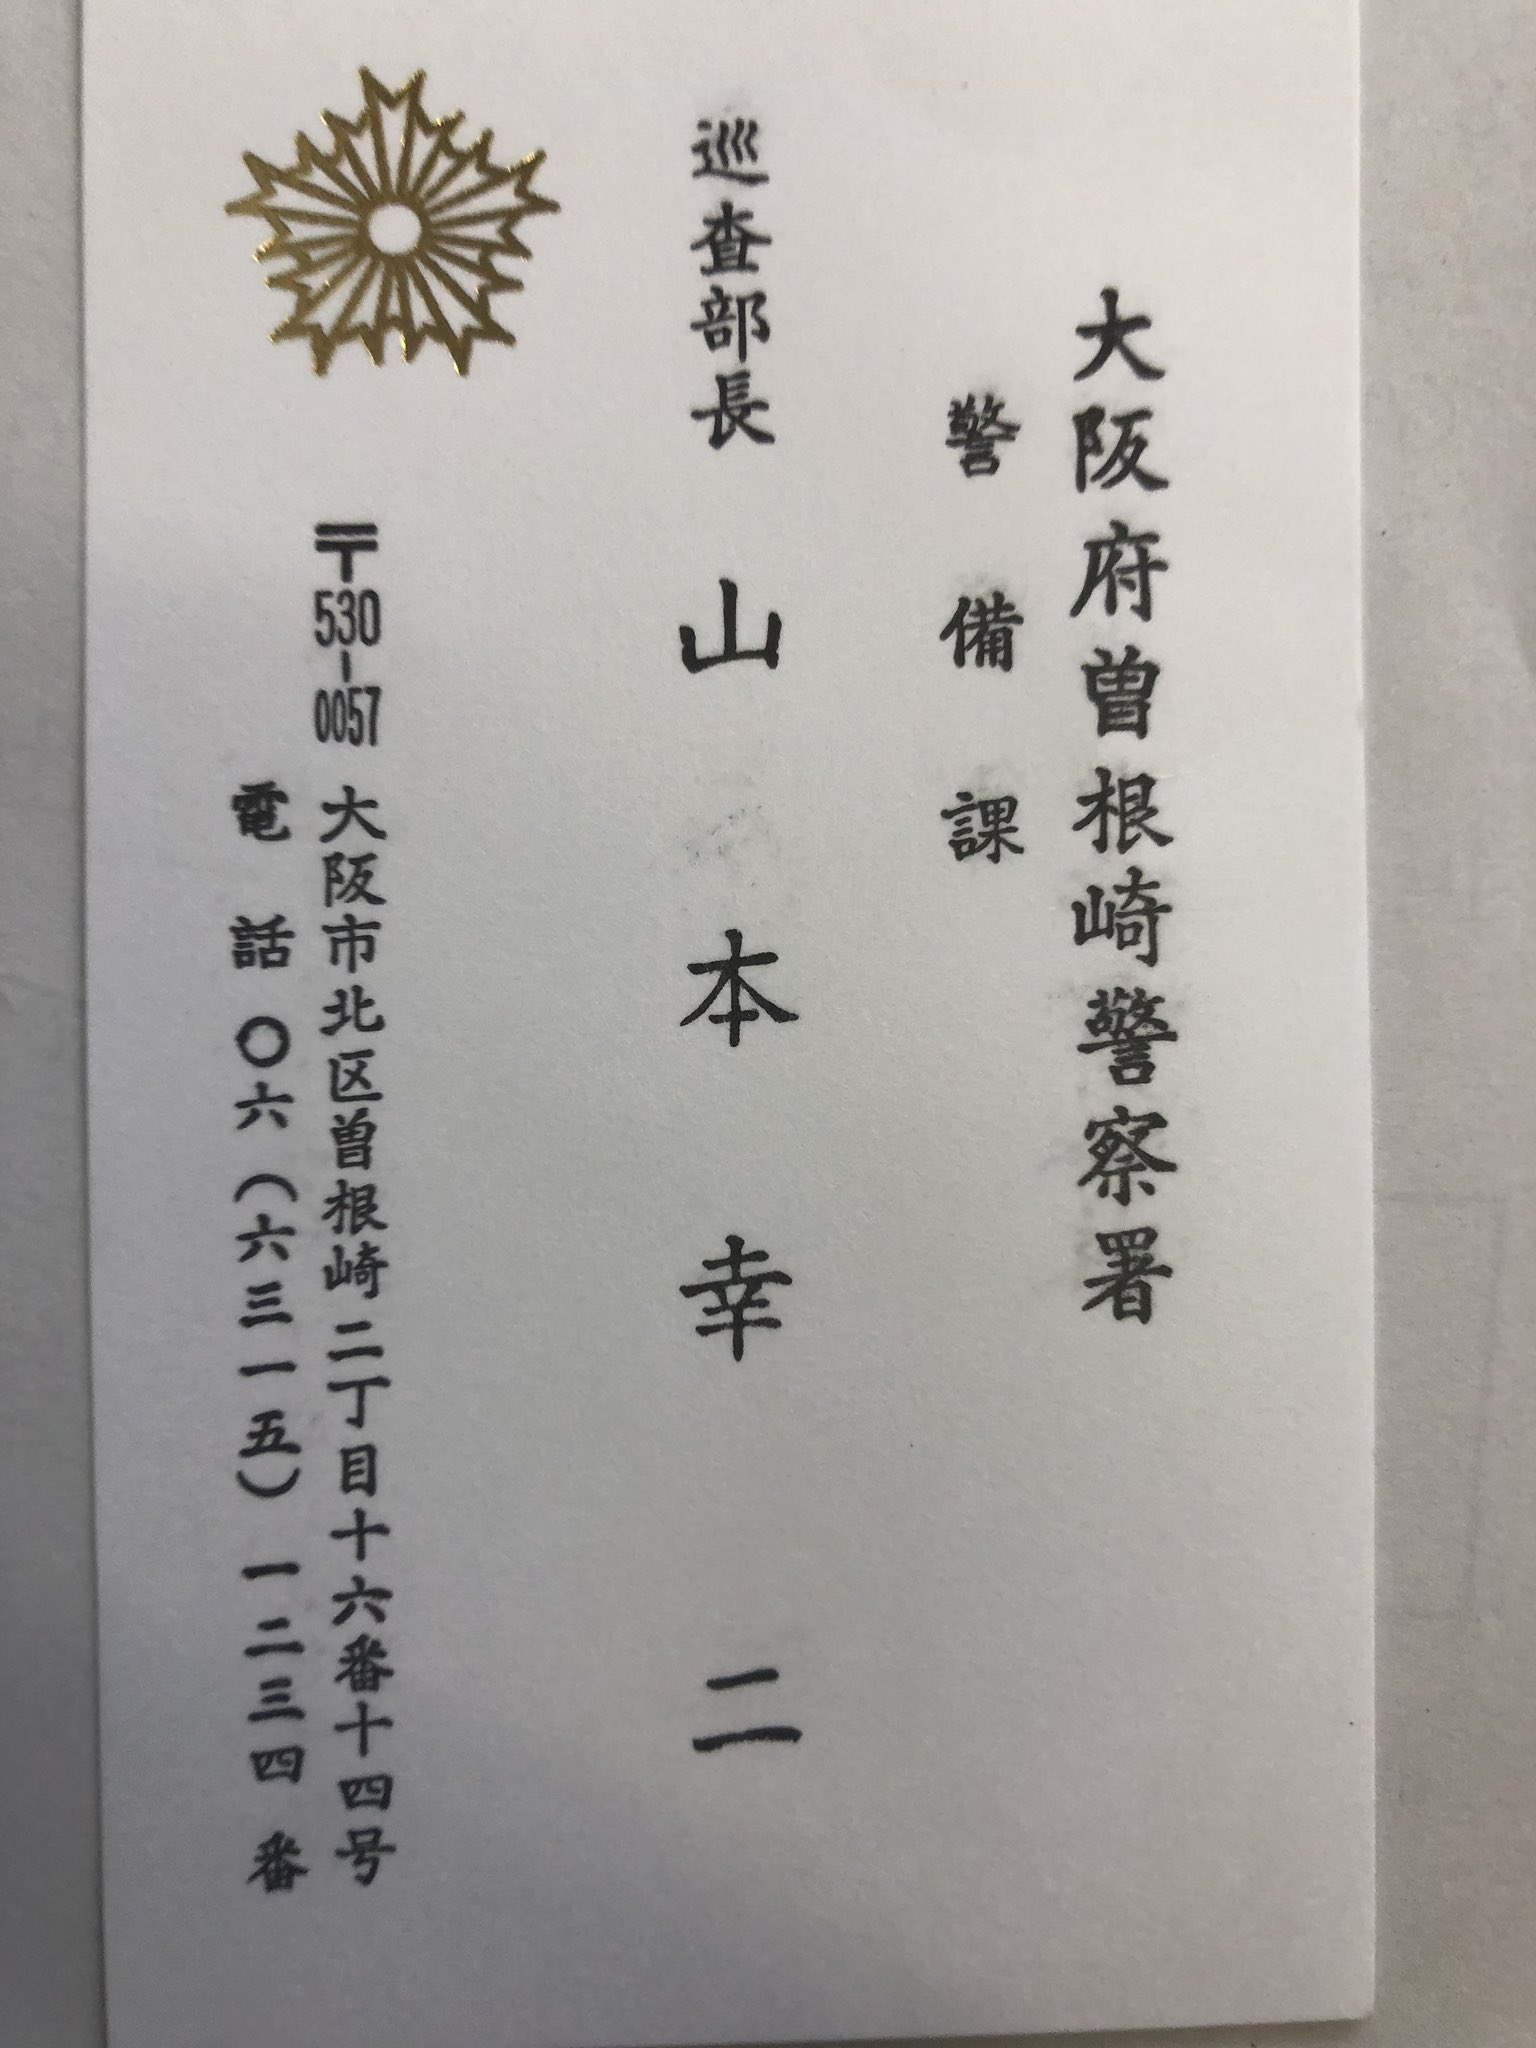 大阪府曽根崎警察署
警備課
巡査部長 山本幸二
〒530-0057 大阪市北区曽根崎二丁目十六番十四号
電話〇六(六三一五)一二三四番